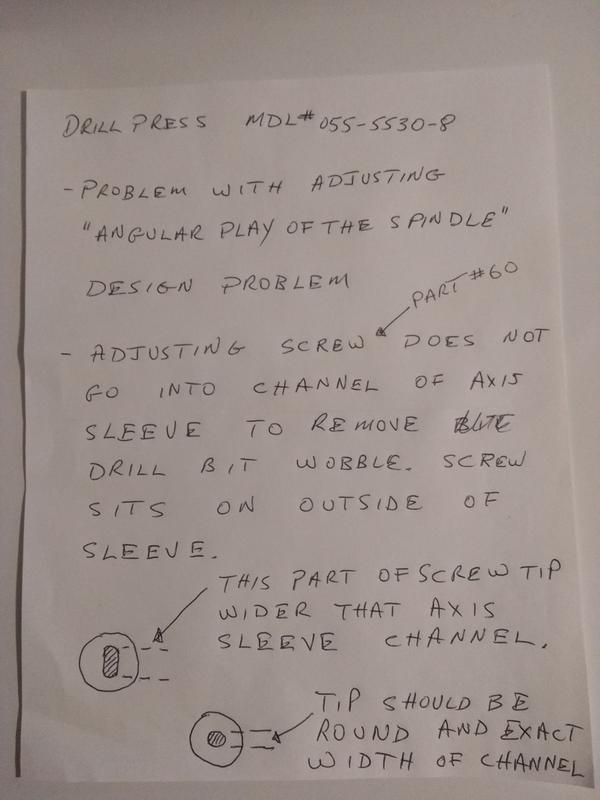 DRILL PRESS MDL# 055-5530-8
- PROBLEM WITH ADJUSTING
"ANGULAR PLAY OF THE SPINDLE"
DESIGN PROBLEM
PART #60
- ADJUSTING SCREW DOES NOT
GO INTO CHANNEL OF AXIS
SLEEVE TO REMOVE
DRILL BIT WOBBLE. SCREW
SITS ON OUTSIDE OF
SLEEVE.
THIS PART OF SCREW TIP
WIDER THAT AXIS
SLEEVE CHANNEL.
TIP SHOULD BE
ROUND AND EXACT
WIDTH OF CHANNEL